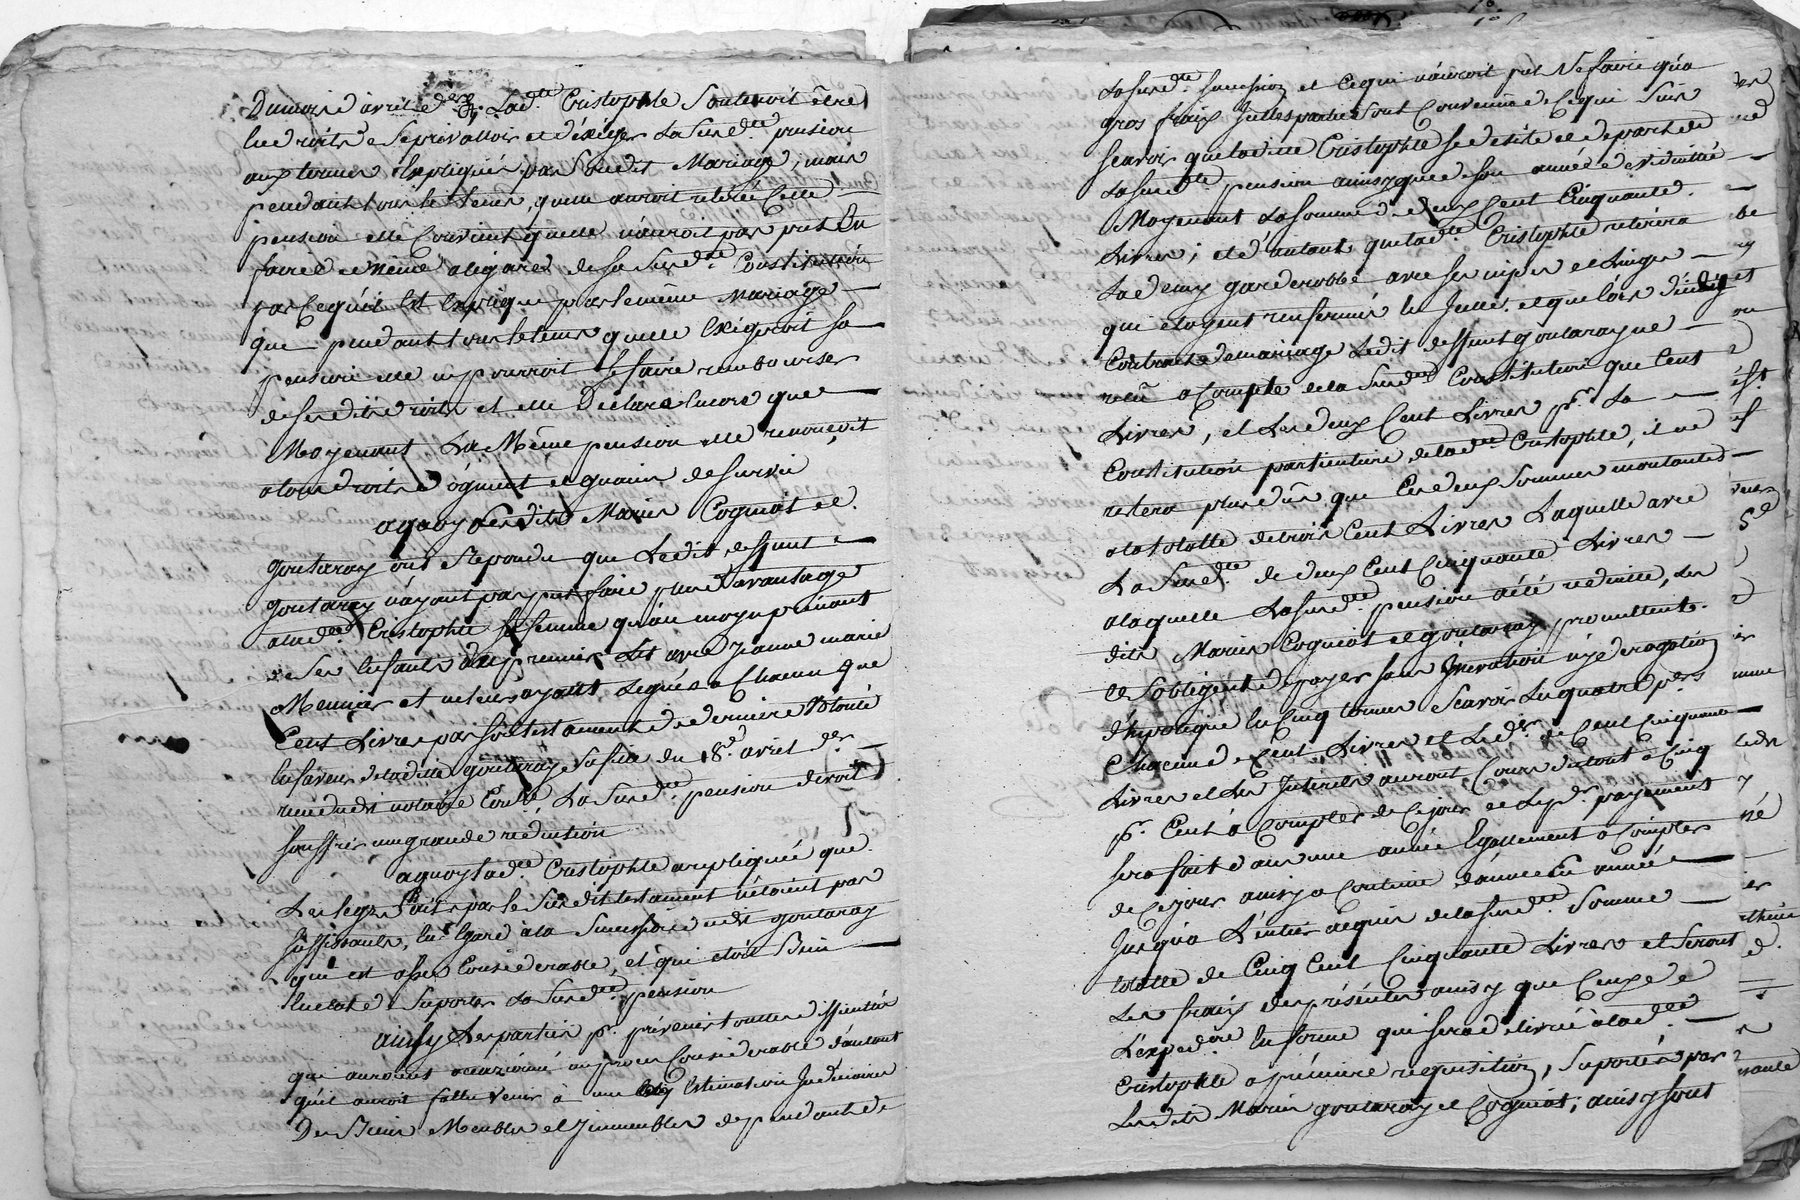 Dumois d'avril der. Lad.te Cristophle Soutenoit être
en droits de se prevalloir et d'exiger La Susd.te pension
aux termes Expliqués par Sondit Mariage, mais
pendant tous le tems quelle auroit retirée Cette
pension elle Convient quelle n'auroit pas peut En
faire de même alegard de sa Susd.te Constitution
par Ce qu'il Est Expliqué par le même Mariage
que pendant tous le tems quelle Exigeroit sa
pension elle ne pourroit se faire rembourser
de sesdits droits et elle Declare Encore que
Moyenant La Même pension elle renonçoit
a tous droits d'ogment et guain de survie
aquoy Lesdits Mariés Cogniat et
goutaray ont Repondu que Ledit deffunt
goutaray n'ayant pas peut faire plus d'avantage
alad.te Cristophle sa femme qu'au moyn prenant
de Ses Enfants du premier Lit avec Jeanne marie
Meunier et ne leurs ayant Legués a Chacun que
Cent Livres par son testament de derniere Volonté
En faveur de ladite goutaray sa fille du 18.e avril der
receu dudit notaire Conté, La Susd.te pension devoit
souffrir une grande reduction
aquoy Lad.te Cristophle a repliquée que
Les legs faits par le Susdit testament n'étoient pas
suffisants, En Egard a la Succession dudit goutaray
qui est assés Considerable, et qui etoit Bien
En etat de Suporter La Susd.te pension
ainsy Les parties p.r prévenir toutte difficultés
qui auroient occazionné un proces Considerable d'autant
qu'il auroit fallu venir à une Estimation Judiciaire
Des Biens Meubles et Jmmeubles dependants de
La susd.te succession et Ce qui n'auroit put Se faire qu'a
gros fraix Jcelles parties sont Convenues de Ce qui Suit
scavoir que ladite Cristophle se desiste et depart de
La susd.te pension ainsy que de son année de viduitté
Moyenant La somme de deux Cent Cinquante
Livres; et d'autant que lad.te Cristophle retirera
La deux garderobbe avec ses nipes et Linges
qui etoyent renfermés En Jcelle et que lors dudit
Contract de mariage Ledit deffunt goutaray ne
recû a Compte de la Susd.te Constitution que Cent
Livres, et Les deux Cent Livres p.r La
Constitution particuliere de lad.te Cristophle, il ne
restera plus dû que Ces deux Sommes montantes
a la totalle de trois Cent Livres Laquelle avec
La Susd.te de deux Cent Cinquante Livres
a laquelle La susd.te pension a été reduitte, Les
dits Mariés Cogniat et goutaray promettent
et s'obligent de payer sans Jnnovation ny derogation
d'hypoteque En Cinq termes Scavoir Les quatre pers
Chacun de Cent Livres et Le der de Cent Cinquante
Livres et Les Jnterets auront Cours du tout a Cinq
p.r Cent à Compter de Ce jour et Le pr payement
sera fait dans une année Egallement a Compter
de Ce jour ainsy a Continué d'année En année
Jusqu'a L'entier acquis de la susd.te Somme
totalle de Cinq Cent Cinquante Livres et Seront
Les fraix des présentes ainsy que Ceux de
L'exped.on En forme qui sera delivré à lad.te
Cristophle a prémiere requisition, Suportés par
Lesdits Mariés goutaray et Cogniat, ainsy sont